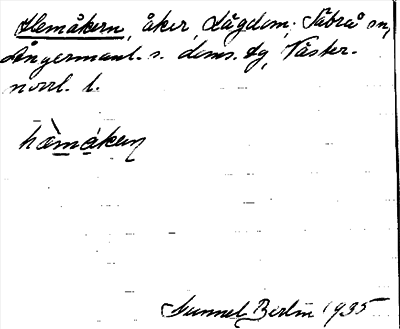 Hemåkern, åker, Lågdom, Säbrå sn,
Ångermanl. s. doms. dg, Väster-
norrl. l.
hæmåkeɳ
Gunnel Berlin 1935